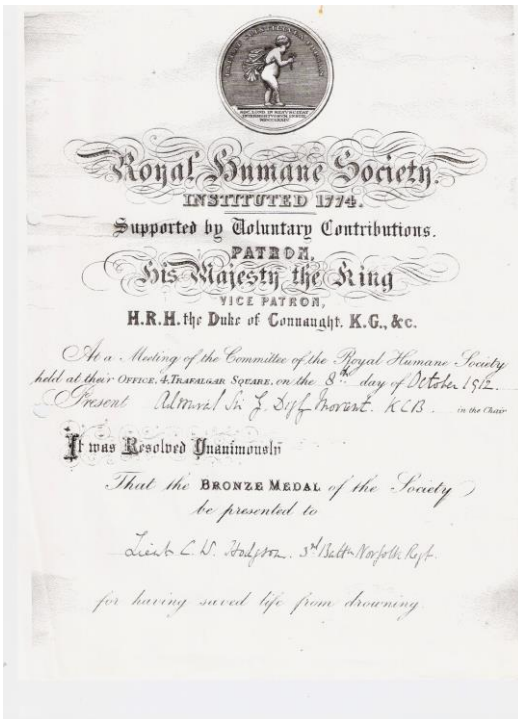 Royal Humane Society.
INSTITUTED 1774.
Supported by Voluntary Contributions.
PATRON,
His Majesty the King
VICE PATRON,
H.R.H. the Duke of Connaught, K.G., &c.
At a Meeting of the Committee of the Royal Humane Society
held at their OFFICE, 4, TRAFALGAR SQUARE, on the 8th day of October 1912.
Present Admiral Sir Morant. KCB. in the Chair
It was Resolved Unanimously
That the BRONZE MEDAL of the Society
be presented to
Lieut C. W. Hodgson. 3rd Battn Norfolk Regt.
for having saved life from drowning